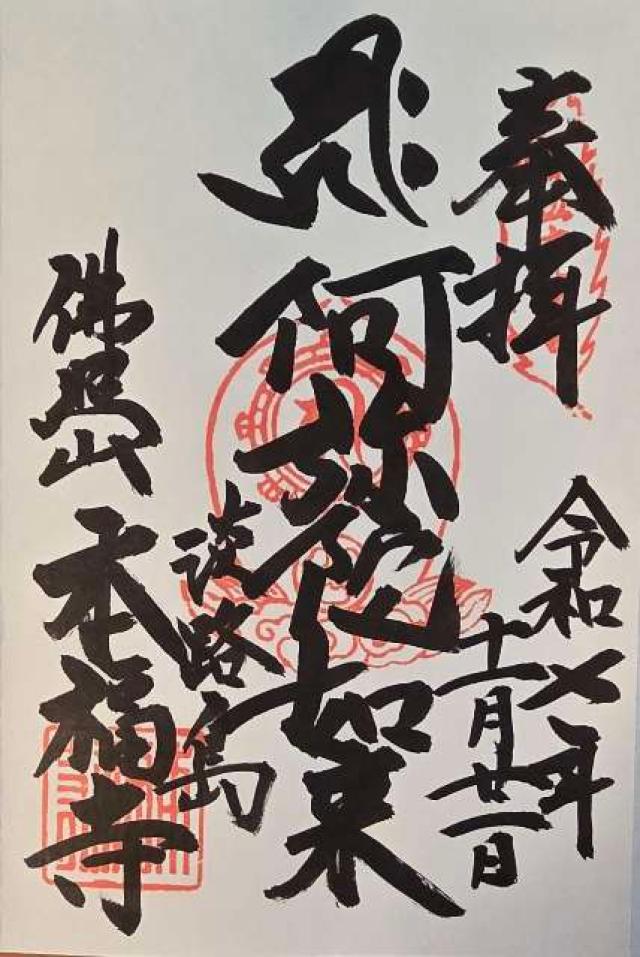 奉拝
令和七年
十一月廿一日
𑖮𑖿𑖨𑖱𑖾
阿弥陀如来
淡路島
佛照山
本福寺